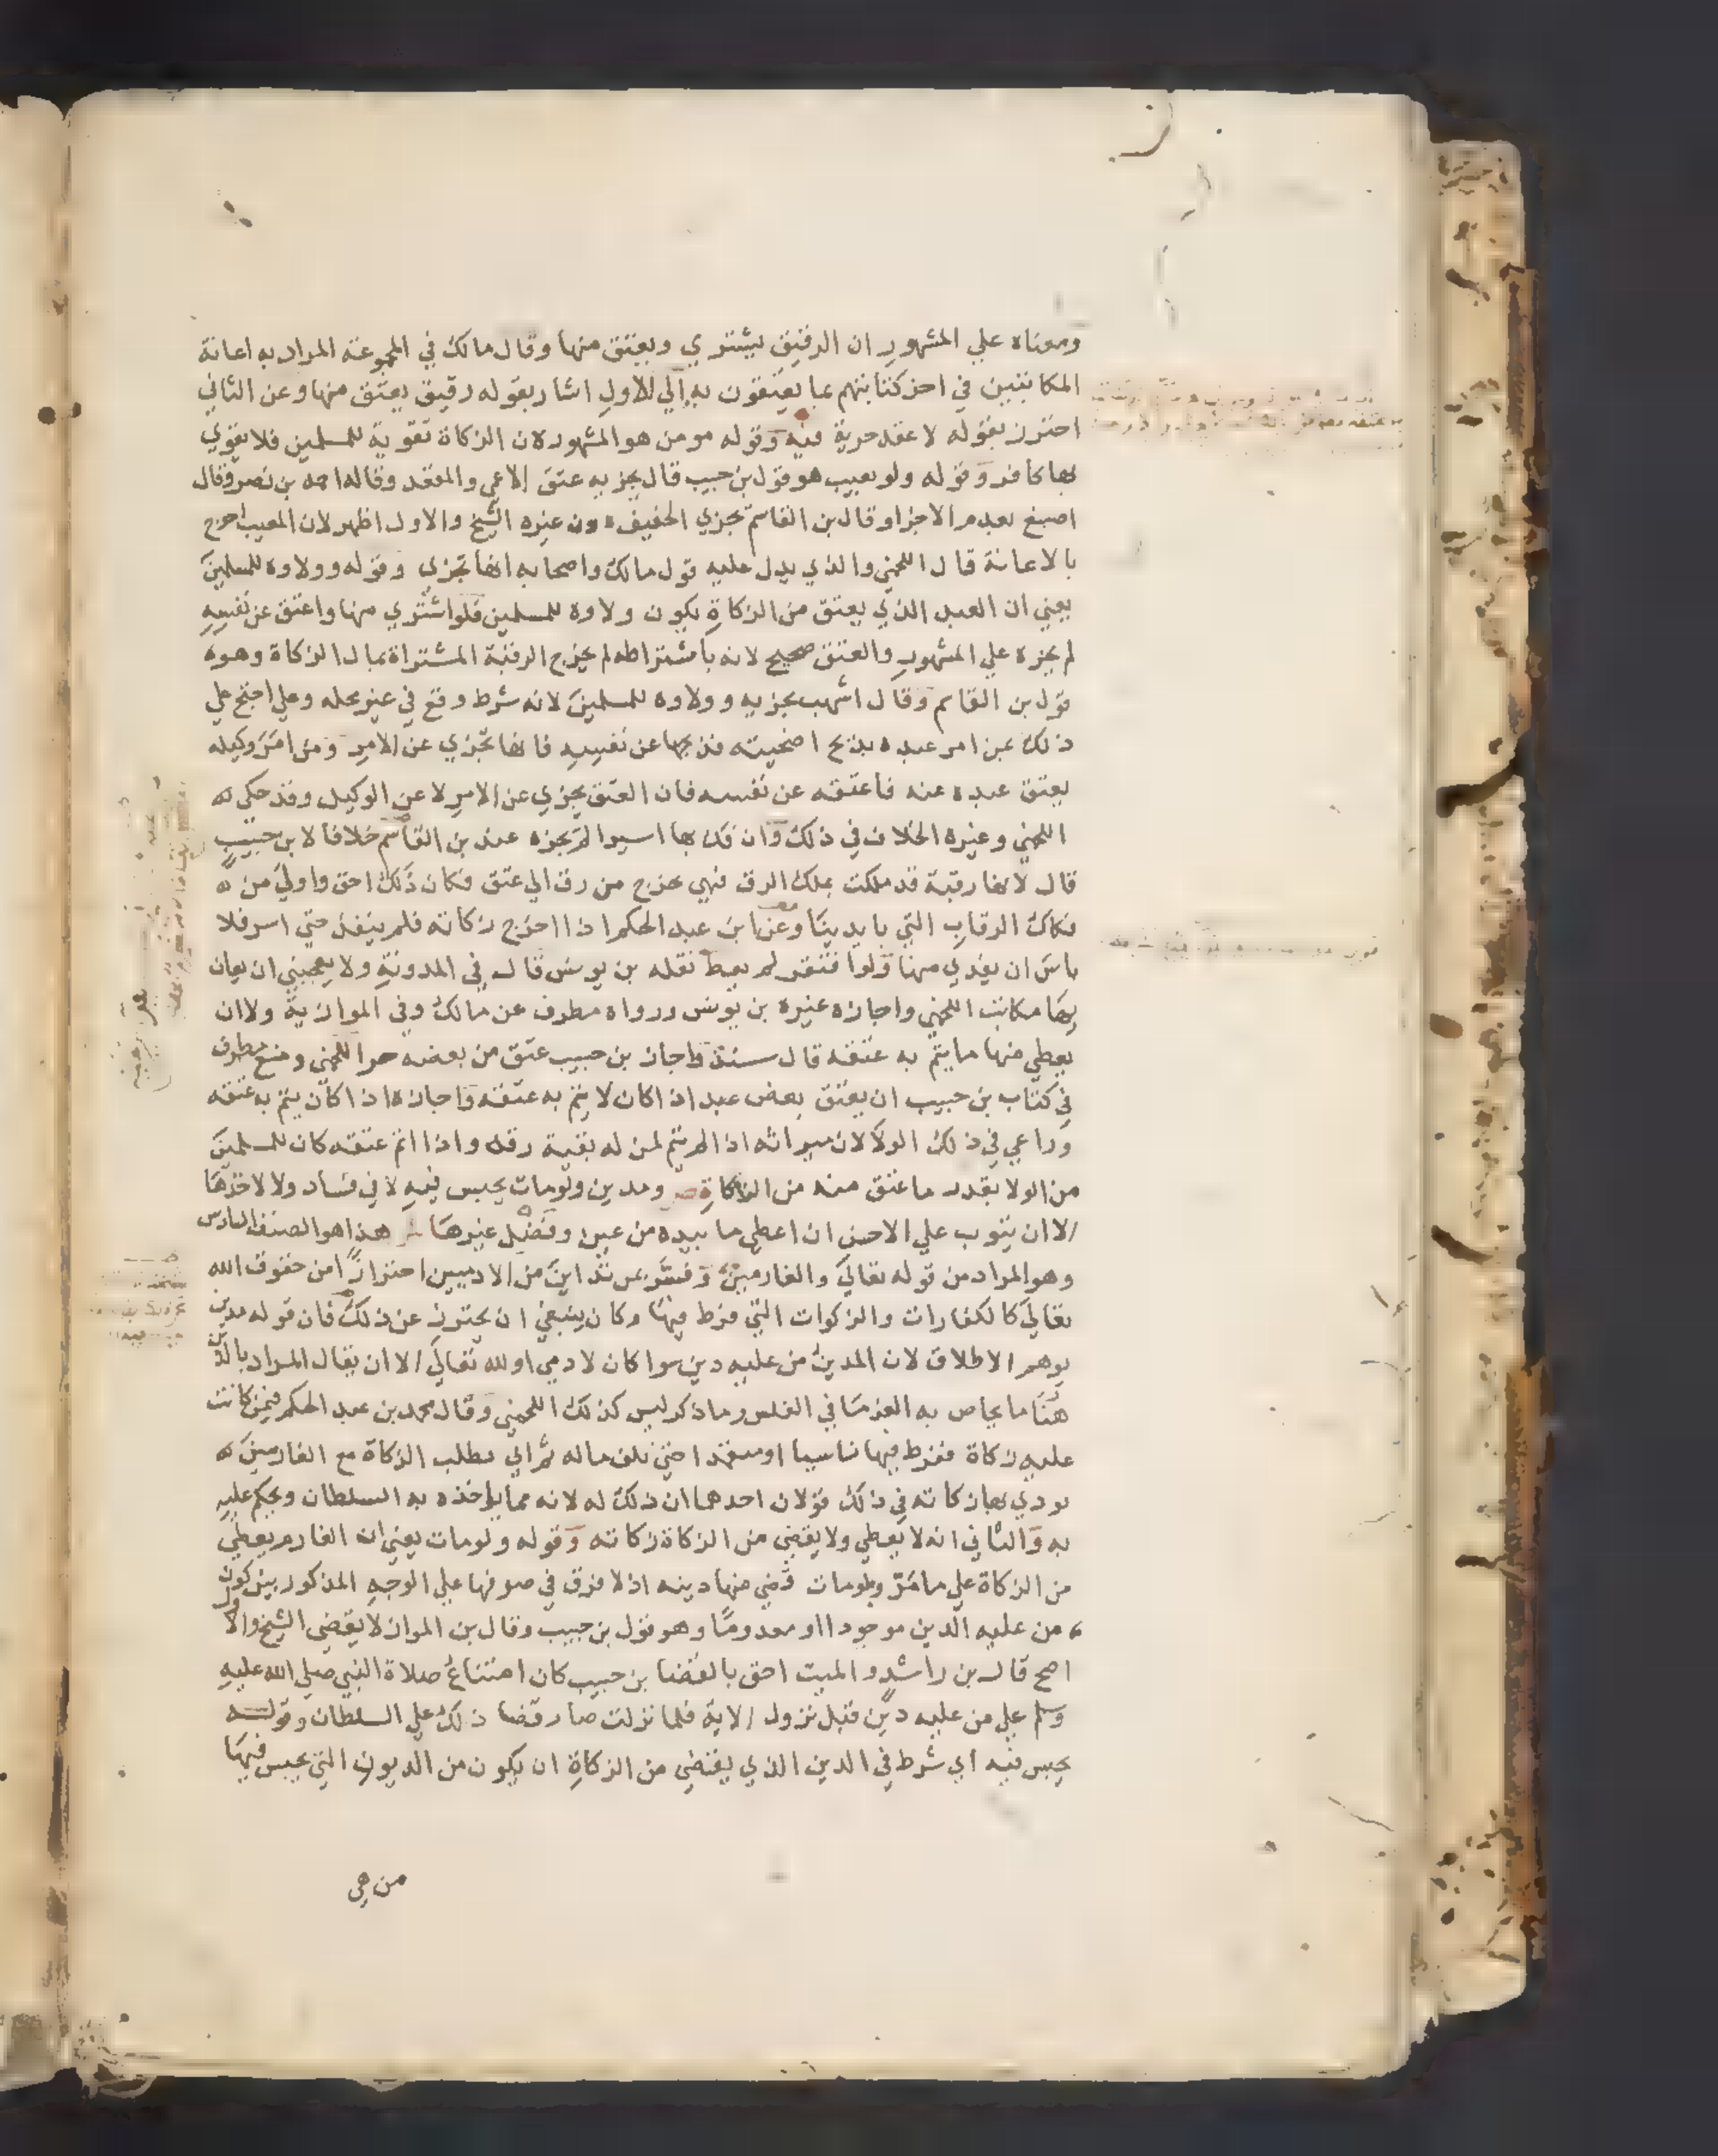 ومعناه علي المشهور ان الرقيق يشتري ويعتق منها وقال مالك في المجموعة المراد به اعانة
المكاتبين في اخر كتابتهم بما يعتقون به الي الاول اشار بقوله رقيق يعتق منها وعن الثاني
احترز بقوله لا عقد حرية فيه وقوله مومن هو المشهور لان الزكاة تقوية للمسلمين فلا يقوي
بها كافر وقوله ولو بعيب هو قول بن حبيب قال يجزيه عتق الاعمي والمقعد وقاله احمد بن نصر وقال
اصبغ بعدم الاجزا وقال بن القاسم تجزي الخفيف دون غيره الشيخ والاول اظهر لان المعيب احوج
بالاعانة قال اللخمي والذي يدل عليه قول مالك واصحابه انها تجزي وقوله وولاوه للمسلمين
يعني ان العبد الذي يعتق من الزكاة يكون ولاوه للمسلمين فلو اشتري منها واعتق عن نفسه
لم يجزه علي المشهور والعتق صحيح لانه باشتراطه لم يخرج الرقبة المشتراة بمال الزكاة وهو
قول بن القاسم وقال اشهب يجزيه وولاوه للمسلمين لانه شرط وقع في غير محله وعلي احتج علي
ذلك بمن امر عبده بذبح اضحيته فذبحها عن نفسه فانها تجزي عن الامر ومن امر وكيله
بعتق عبده عنه فاعتقه عن نفسه فان العتق يجزي عن الامر لا عن الوكيل وقد حكي
اللخمي وغيره الخلاف في ذلك وان فك بها اسيرا لم يجزه عند بن القاسم خلافا لابن حبيب
قال لانها رقبة قد ملكت بملك الرق فهي تخرج من رق الي عتق فكان ذلك احق واولي من
فكاك الرقاب التي بايدينا وعن ابن عبد الحكم اذا اخرج زكاته فلم ينفذ حتي اسر فلا
باس ان يفدي منها ولو افتقر لم يعط نقله بن يونس قال في المدونة ولا يعجبني ان يعان
بها مكاتب اللخمي واجازه غيره بن يونس ورواه مطرف عن مالك وفي الموازية ولا ان
يعطي منها ما يتم به عتقه قال سند واجاز بن حبيب عتق من بعضه حر اللخمي ومنع مطرف
في كتاب بن حبيب ان يعتق بعض عبد اذا كان لا يتم به عتقه واجازه اذا كان يتم به عتقه
وراعي في ذلك الولا لان ميراثه اذا لم يتم لمن له بقية رقه واذا اتم عتقه كان للمسلمين
من الولا بقدر ما عتق منه من الزكاة ص ومدين ولو مات يحبس فيه لا في فساد ولا لاخذها
الا ان يتوب علي الاحسن ان اعطي ما بيده من عين وفضل غيرها ش هذا هو الصنف السادس
وهو المراد من قوله تعالي والغارمين وفسر بمن تداين من الادميين احترازا من حقوق الله
تعالي كالكفارات والزكوات التي فرط فيها وكان ينبغي ان يحترز عن ذلك فان قوله مدين
يوهم الاطلاق لان المدين من عليه دين سوا كان لادمي او لله تعالي الا ان يقال المراد بالدين
هنا ما يحاص به الغرما في الفلس وما ذكر ليس كذلك اللخمي وقال محمد بن عبد الحكم فيمن كانت
عليه زكاة ففرط فيها ناسيا او متعمدا حتي تلف ماله ثم اتي يطلب الزكاة مع الغارمين
يودي بها زكاته في ذلك قولان احدهما ان ذلك له لانه مما ياخذه به السلطان ويحكم عليه
به والثاني انه لا يعطي ولا يقضي من الزكاة زكاته وقوله ولو مات يعني ان الغارم يعطي
من الزكاة علي ما مر ولو مات قضي منها دينه اذ لا فرق في صرفها علي الوجه المذكور بين كون
من عليه الدين موجودا او معدوما وهو قول بن حبيب وقال بن المواز لا يقضي الشيخ والاول
اصح قال بن راشد والميت احق بالقضا بن حبيب كان امتناع صلاة النبي صلي الله عليه
وسلم علي من عليه دين قبل نزول الاية فلما نزلت صار قضا ذلك علي السلطان وقوله
يحبس فيه اي شرط في الدين الذي يقتضي من الزكاة ان يكون من الديون التي يحبس فيها
من هي